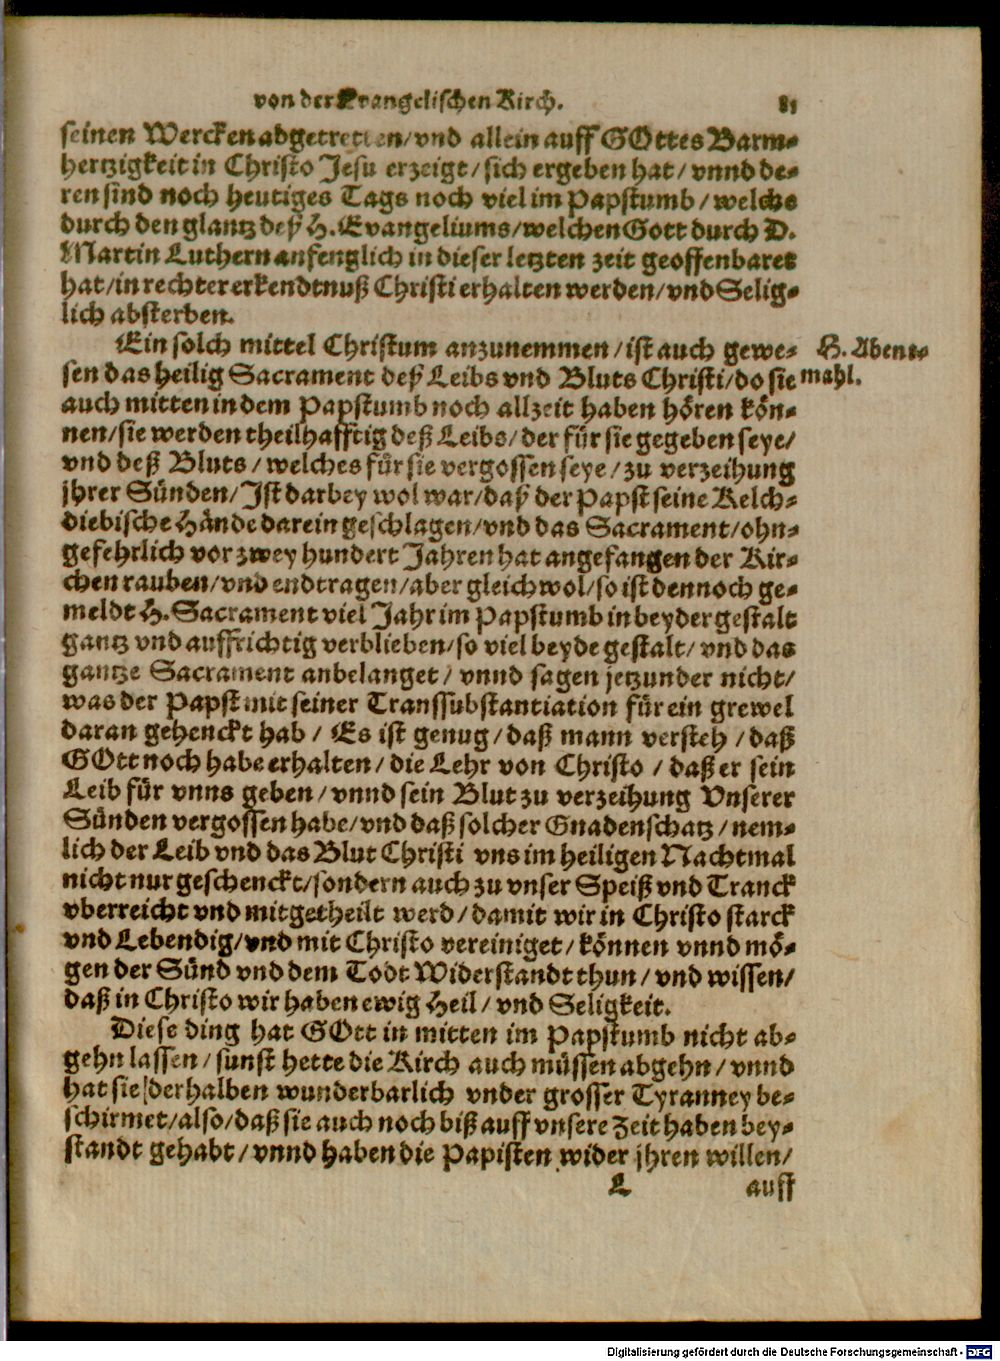 von der Evangelischen Kirch. 81
seinen Wercken abgetretten/vnd allein auff GOttes Barm-
hertzigkeit in Christo Jesu erzeigt/sich ergeben hat/vnnd de-
ren sind noch heutiges Tags noch viel im Papstumb/welche
durch den glantz deß H. Evangeliums/welchen Gott durch D.
Martin Luthern anfenglich in dieser letzten zeit geoffenbaret
hat/in rechter erkendtnuß Christi erhalten werden/vnd Selig-
lich absterben.
Ein solch mittel Christum anzunemmen/ist auch gewe-
H. Abent-
sen das heilig Sacrament deß Leibs vnd Bluts Christi/do sie
mahl.
auch mitten in dem Papstumb noch allzeit haben hören kön-
nen/sie werden theilhafftig deß Leibs/der für sie gegeben seye/
vnd deß Bluts/welches für sie vergossen seye/zu verzeihung
jhrer Sünden/Ist darbey wol war/daß der Papst seine Kelch-
diebische Hände darein geschlagen/vnd das Sacrament/ohn-
gefehrlich vor zwey hundert Jahren hat angefangen der Kir-
chen rauben/vnd endtragen/aber gleichwol/so ist dennoch ge-
meldt H. Sacrament viel Jahr im Papstumb in beyder gestalt
gantz vnd auffrichtig verblieben/so viel beyde gestalt/vnd das
gantze Sacrament anbelanget/vnnd sagen jetzunder nicht/
was der Papst mit seiner Transsubstantiation für ein grewel
daran gehenckt hab/Es ist genug/daß mann versteh/daß
GOtt noch habe erhalten/die Lehr von Christo/daß er sein
Leib für vnns geben/vnnd sein Blut zu verzeihung Vnserer
Sünden vergossen habe/vnd daß solcher Gnadenschatz/nem-
lich der Leib vnd das Blut Christi vns im heiligen Nachtmal
nicht nur geschenckt/sondern auch zu vnser Speiß vnd Tranck
vberreicht vnd mitgetheilt werd/damit wir in Christo starck
vnd Lebendig/vnd mit Christo vereiniget/können vnnd mö-
gen der Sünd vnd dem Todt Widerstandt thun/vnd wissen/
daß in Christo wir haben ewig Heil/vnd Seligkeit.
Diese ding hat GOtt in mitten im Papstumb nicht ab-
gehn lassen/sunst hette die Kirch auch müssen abgehn/vnnd
hat sie derhalben wunderbarlich vnder grosser Tyranney be-
schirmet/also/daß sie auch noch biß auff vnsere Zeit haben bey-
standt gehabt/vnnd haben die Papisten wider jhren willen/
L auff
Digitalisierung gefördert durch die Deutsche Forschungsgemeinschaft - DFG